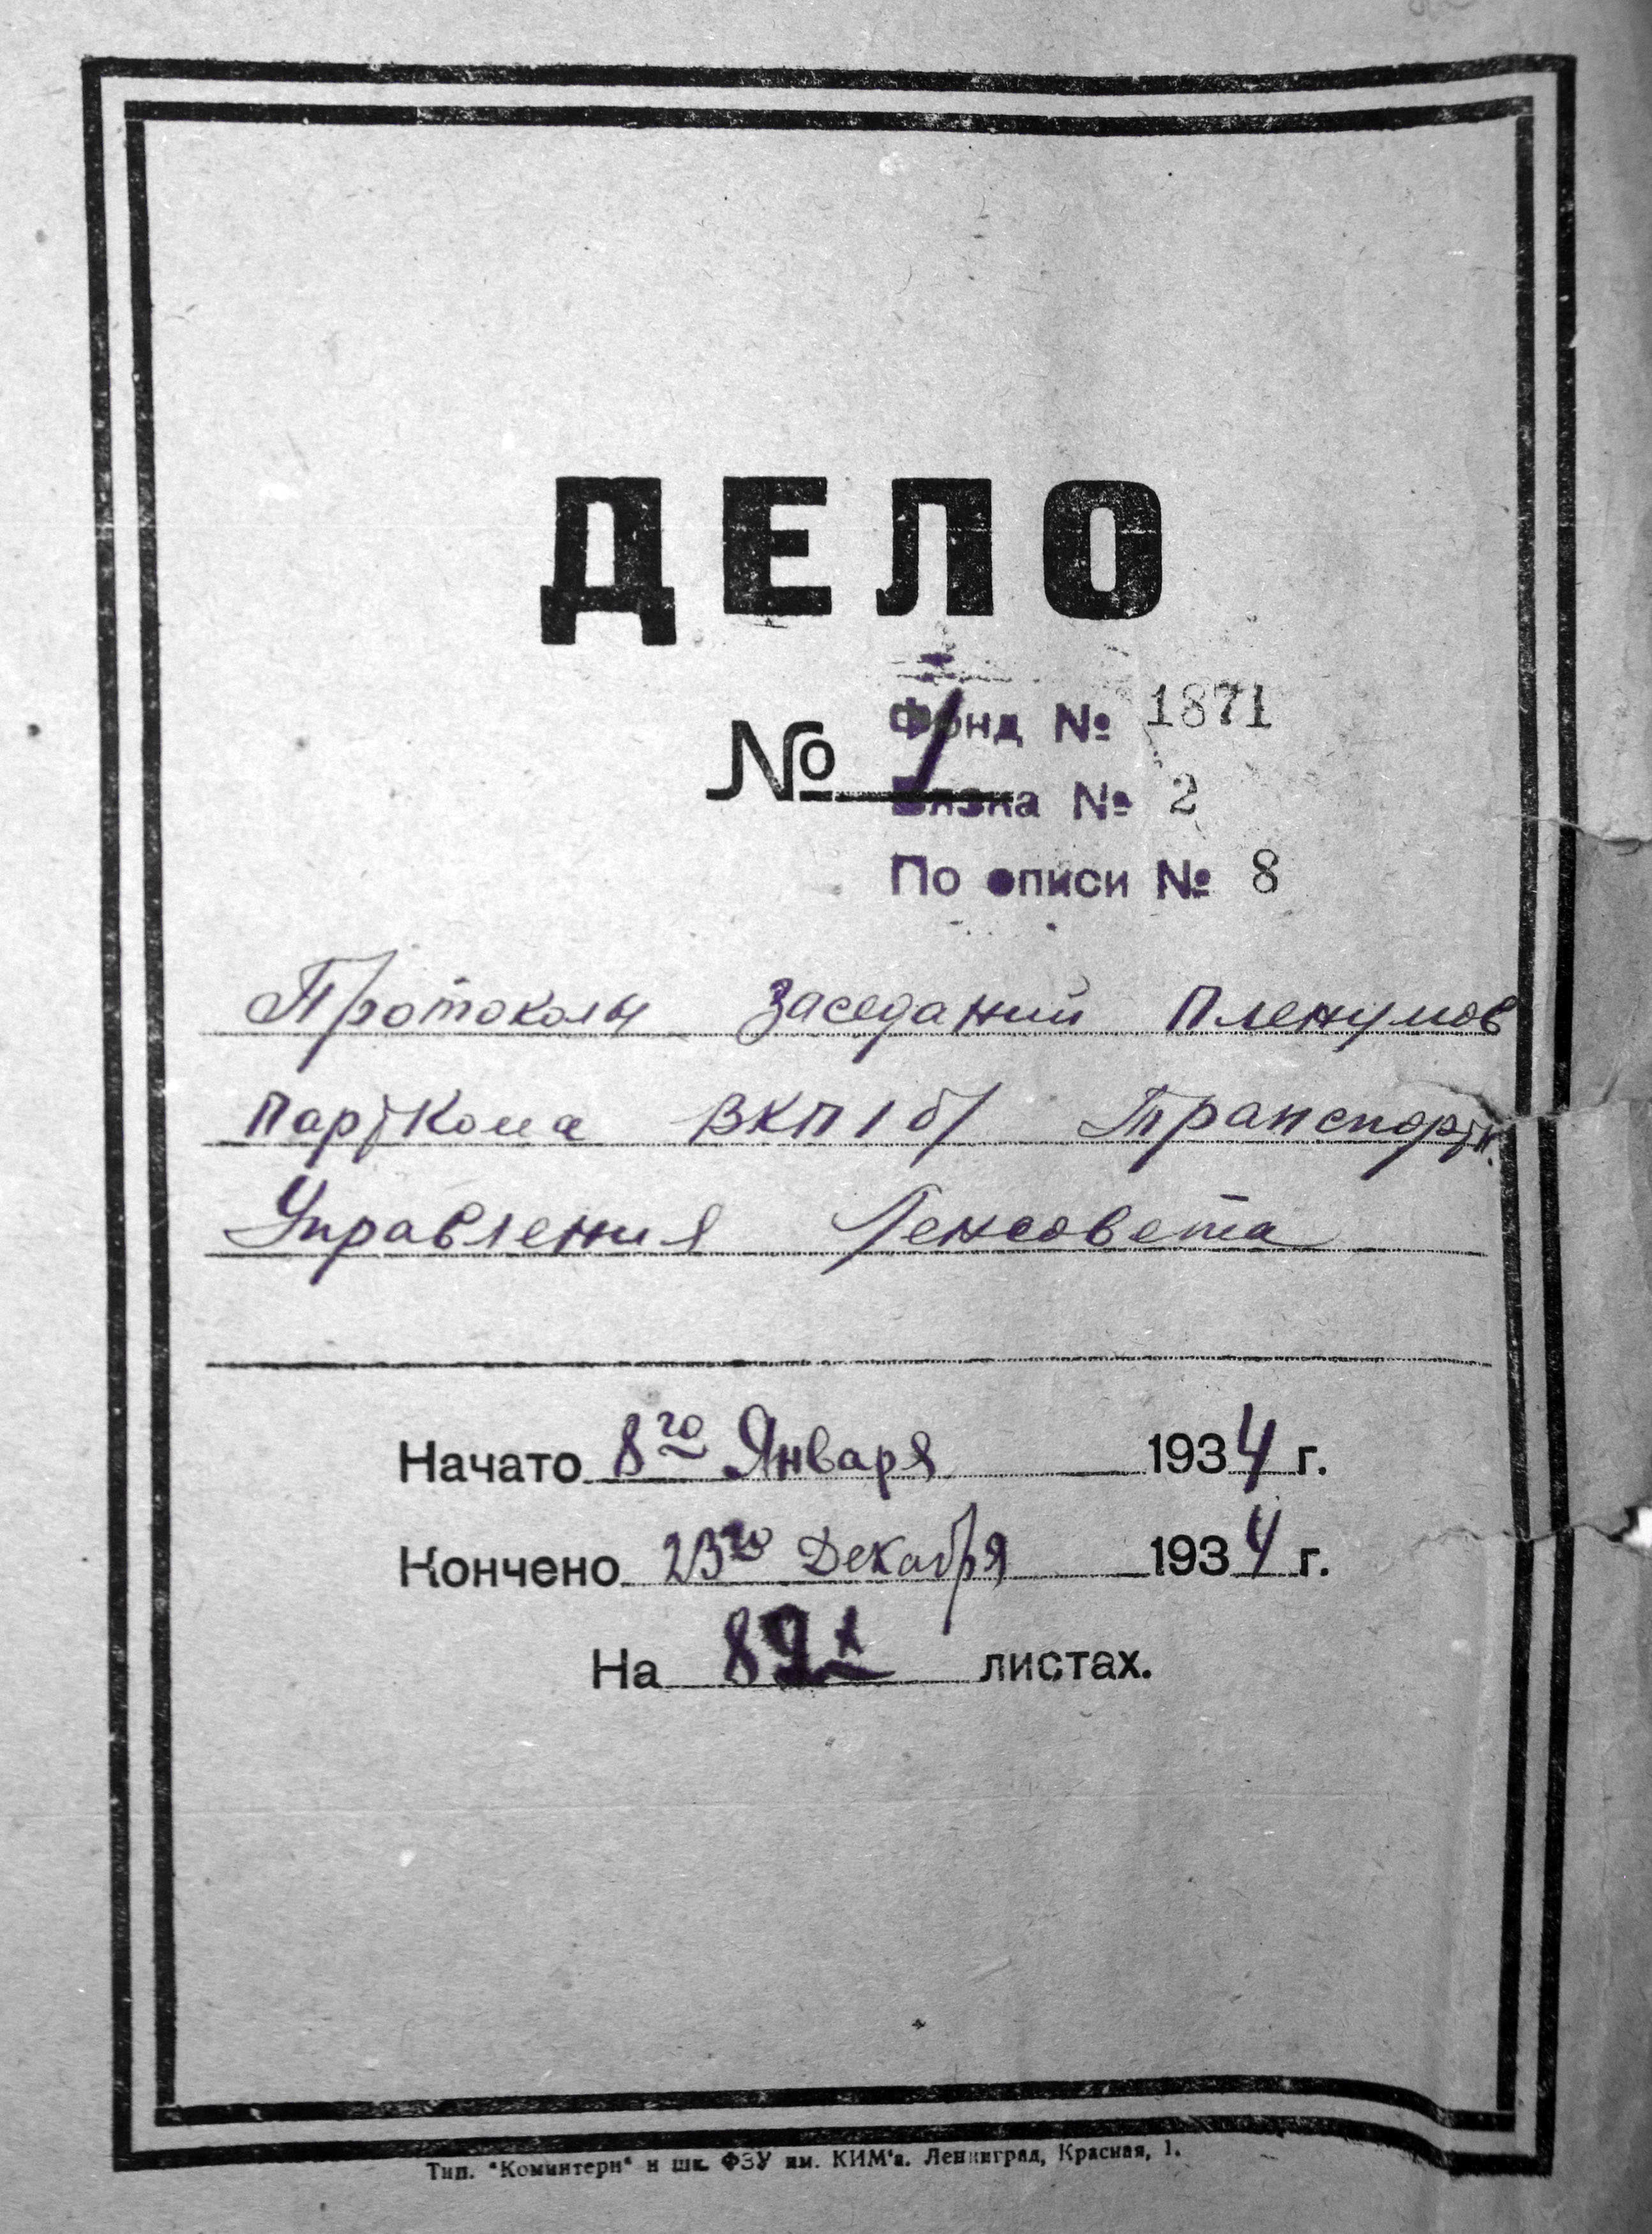 ДЕЛО
Фонд № 1871
№ 1
Вязка № 2
По описи № 8
Протоколы заседаний Пленумов
парткома ВКП/б/ Транспортн.
Управления Ленсовета
Начато 8го Января 1934 г.
Кончено 23го Декабря 1934 г.
На листах.
Тип. "Коминтерн" и шк. ФЗУ им. КИМ'а. Ленинград, Красная, 1.